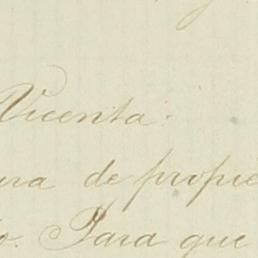 Vicenta.
ura de propie
o. Para que